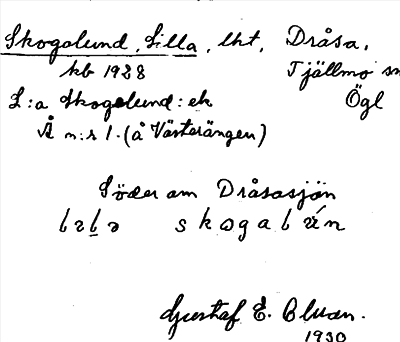 Skogalund, Lilla, lht, Dråsa,
kb 1928 Tjällmo sn
L:a Skogslund: ek Ögl
Å n:r 1. (å Västerängen)
Söder om Dråsasjön
skogalun
Gustaf E. Bluan.
1930